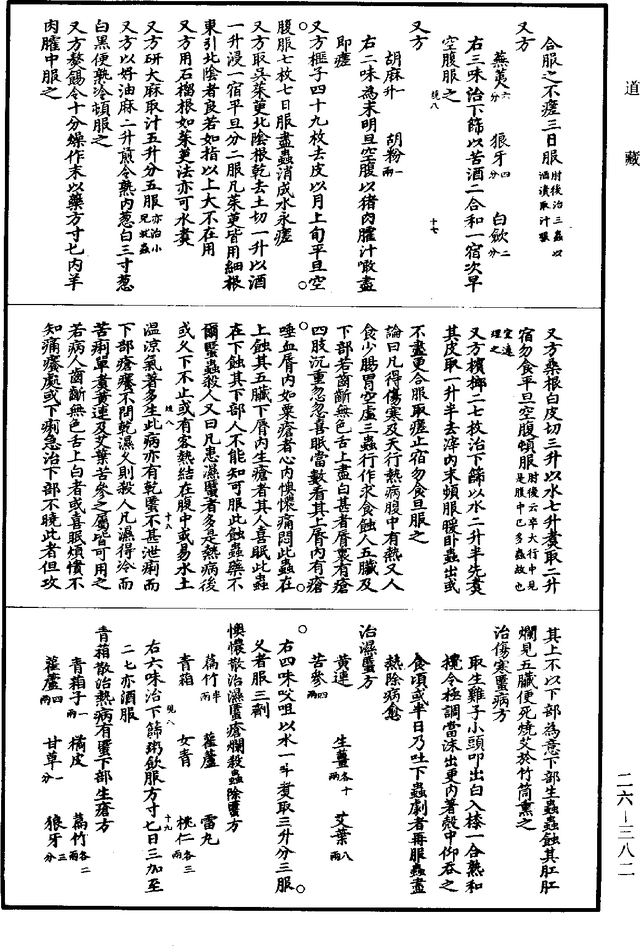 道藏
合服之不瘥三日服肘後治三蟲以酒漬取汁服
又方
蕪荑六分 狼牙四分 白歛二分
右三味治下篩以苦酒二合和一宿次早
空腹服之
又方
胡麻一升 胡粉一兩
右二味為末明旦空腹以猪肉臛汁啖盡
即瘥
又方榧子四十九枚去皮以月上旬平旦空
腹服七枚七日服盡蟲消成水永瘥
又方取吳茱萸北陰根乾去土切一升以酒
一升浸一宿平旦分二服凡茱萸皆用細根
東引北陰者良若如指以上大不在用
又方用石榴根如茱萸法亦可水煑
又方研大麻取汁五升分五服亦治小兒蚘蟲
又方以好油麻二升煎令熟内葱白三寸葱
白黑便熟冷頓服之
又方熬餳令十分燥作末以藥方寸匕内羊
肉臛中服之
又方桑根白皮切三升以水七升煑取二升
宿勿食平旦空腹頓服肘後云卒大行中見是腹中已多蟲故也宜速理之
又方檳榔二七枚治下篩以水二升半先煑
其皮取一升半去滓内末頓服暖卧蟲出或
不盡更合服取瘥止宿勿食旦服之
論曰凡得傷寒及天行熱病腹中有熱又人
食少腸胃空虚三蟲行作求食蝕人五臟及
下部若齒齗無色舌上盡白甚者脣裏有瘡
四肢沉重忽忽喜眠當數看其上脣内有瘡
唾血脣内如粟瘡者心内懊憹痛悶此蟲在
上蝕其五臟下脣内生瘡者其人喜眠此蟲
在下蝕其下部人不能知可服此蝕蟲藥不
爾䘌蟲殺人又曰凡患濕䘌者多是熱病後
或久下不止或有客熱結在腹中或易水土
温涼氣著多生此病亦有乾䘌不甚泄痢而
下部瘡癢不問乾濕久則殺人凡濕得冷而
苦痢單煑黃連及艾葉苦參之屬皆可用之
若病人齒齗無色舌上白者或喜眠煩憒不
知痛癢處或下痢急治下部不曉此者但攻
其上不以下部為意下部生蟲蟲蝕其肛肛
爛見五臟便死燒艾於竹筒熏之
治傷寒䘌病方
取生雞子小頭叩出白入漆一合熟和
攪令極調當沫出更内著殼中仰吞之
食頃或半日乃吐下蟲劇者再服蟲盡
熱除病愈
治濕䘌方
黃連 生薑各十兩 艾葉八兩
苦參四兩
右四味㕮咀以水一斗煑取三升分三服
久者服三劑
懊憹散治濕䘌瘡爛殺蟲除䘌方
萹竹半兩 雚蘆 雷丸
青葙 女青 桃仁各三兩
右六味治下篩粥飲服方寸匕日三加至
二匕亦酒服
青葙散治熱病有䘌下部生瘡方
青葙子一兩 橘皮 萹竹各二兩
雚蘆四兩 甘草一分 狼牙三分
二六—三八二